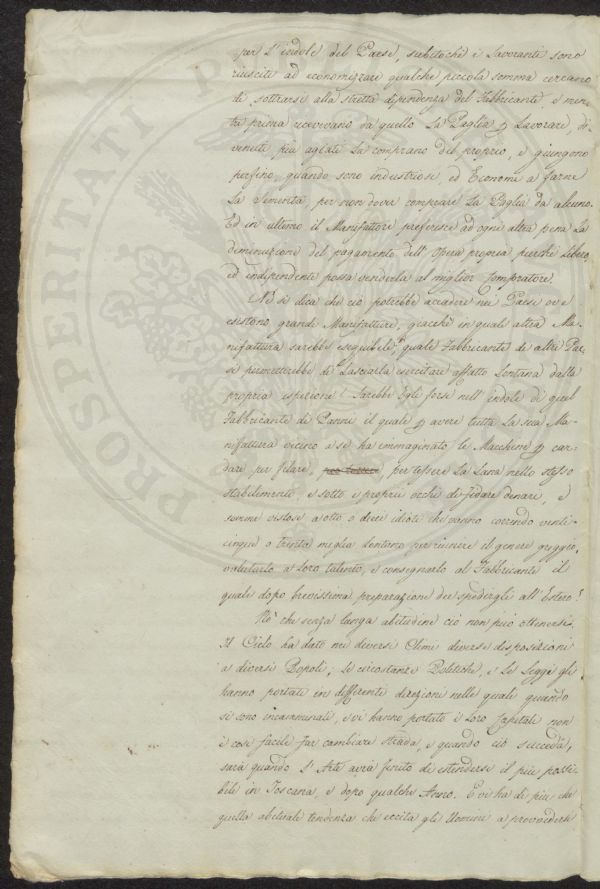 per l'indole del Paese, subitochè i Lavoranti sono
riusciti ad economizzare qualche piccola somma cercano
di sottrarsi alla stretta dipendenza del Fabbricante, e men-
tre prima ricevevano da quello La Paglia p Lavorare, di-
venuti più agiati La comprano del proprio, e giungono
perfino, quando sono industriosi, ed Economi a farne
La Sementa, per non dover comprare La Paglia da alcuno.
Ed in ultimo il Manifattore preferisce ad ogni altra pena La
diminuzione del pagamento dell'Opera propria purchè libero,
ed indipendente possa venderla al miglior Compratore.
Nè si dica che ciò potrebbe accadere nei Paesi ove
esistono grandi Manifatture, giacchè in quale altra Ma-
nifattura sarebbe eseguibile, quale Fabbricante di altri Pae-
si permetterebbe di Lasciarla esercitare affatto Lontana dalla
propria ispezione? Sarebbe Egli forse nell'indole di quel
Fabbricante di Panni il quale p avere tutta La sua Ma-
nifattura vicino a sè ha immaginato le Macchine p car-
dare per filare, per tessere La Lana nello stesso
stabilimento, e sotto i proprii occhi di fidare denari, e
somme vistose a otto o dieci idioti che vanno correndo venti-
cinque o trenta miglia Lontano per riunire il genere greggio,
valutarlo a Loro talento, e consegnarlo al Fabbricante il
quale dopo brevissima preparazione dee spedirgli all'Estero?
Nò che senza lunga abitudine ciò non può ottenersi.
Il Cielo ha dato nei diversi Climi diverse disposizioni
a diversi Popoli; Le circostanze Politiche, e Le Leggi gli
hanno portati in differente direzioni nelle quali quando
si sono incamminati, e vi hanno portato i Loro Capitali non
è così facile far cambiare strada, e quando ciò succeda,
sarà quando L'Arte avrà finito di estendersi il più possi-
bile in Toscana, e dopo qualche Anno. E vi ha di più che
quella abituale tendenza che eccita gli Uomini a provvedersi
PROSPERITATI